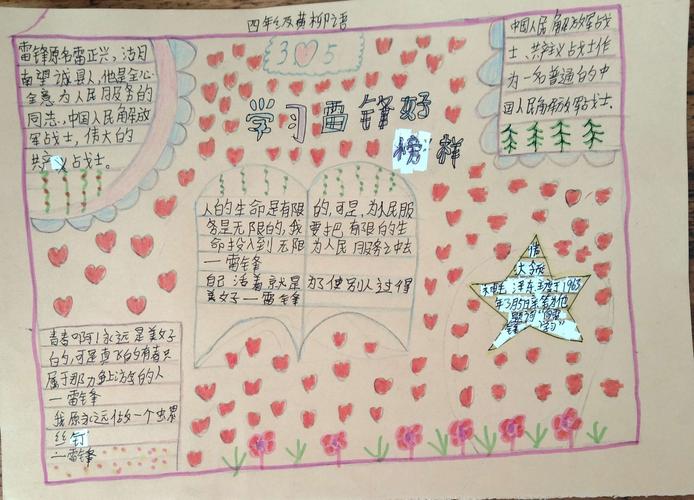 四年级黄柳语
雷锋原名雷正兴，沽月
南望诚县人，他是全心
全意为人民服务的
同志，中国人民角军放
军战士，伟大的
共产义占战士。
3 5
学习雷锋好
榜样
中国人民角军放军战
士、共产主义占戈士作
为一名普通的中
国人民角军放军战士.
人的生命是有限的，可是，为人民服
务是无限的，我要把有限的生
命投入到无限为人民服务之中去
一雷锋
自己活着就是为了使别人过得
美女子一雷锋
青春啊！永远是美女子
白勺，可是真正的青春只
属于那力争上游的人
一雷锋
我原永远做一个虫累
丝钉
一雷锋
情
大爷
于1963
年3月5日